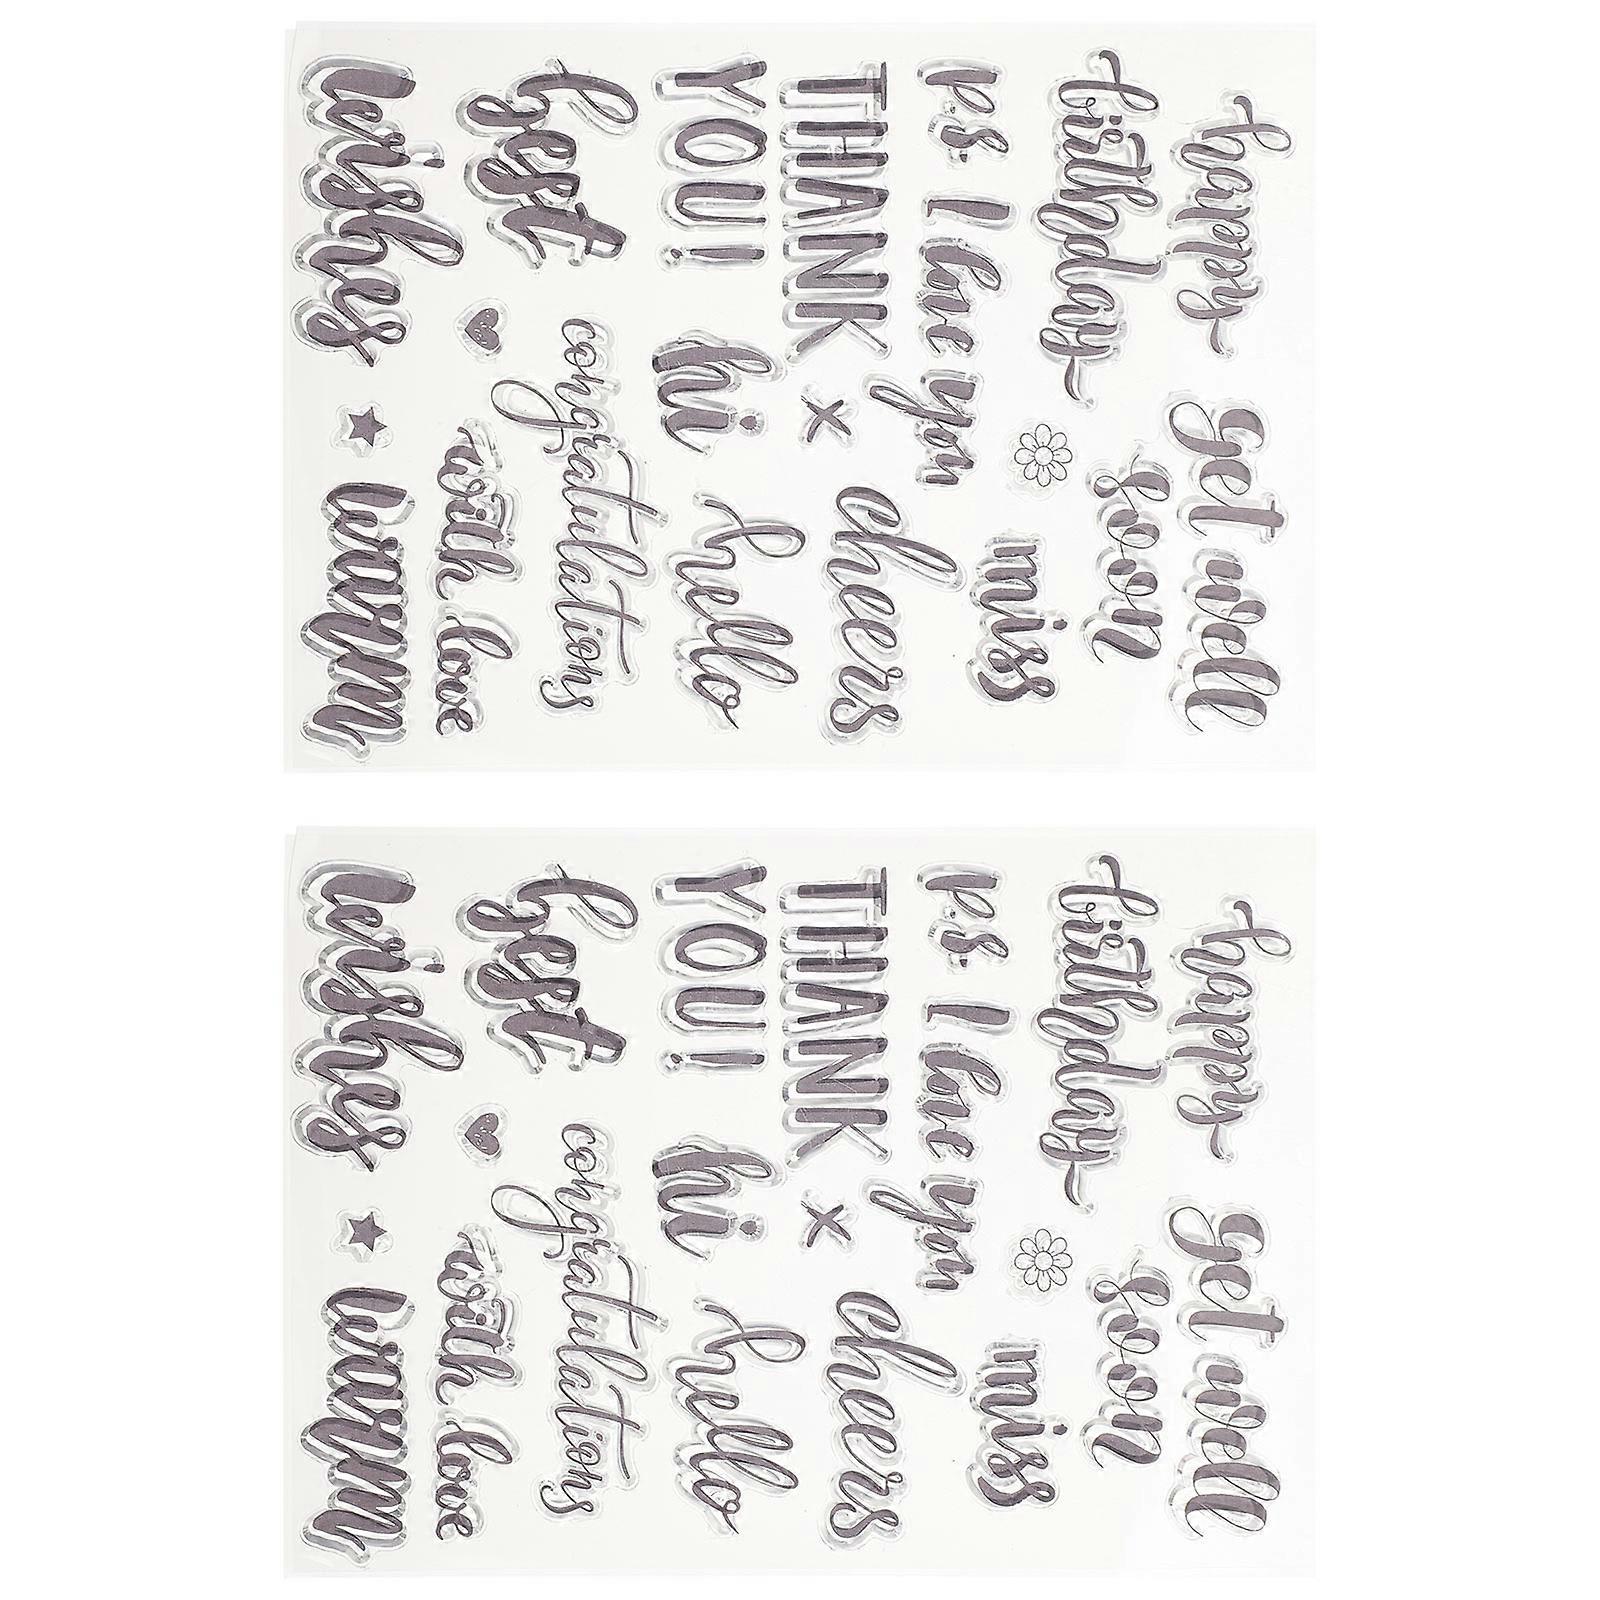 happy
get well
birthday
soon
ps. I love you
miss
THANK
x
cheers
YOU!
hi
hello
best
congratulations
with love
wishes
warm
happy
get well
birthday
soon
ps. I love you
miss
THANK
x
cheers
YOU!
hi
hello
best
congratulations
with love
wishes
warm